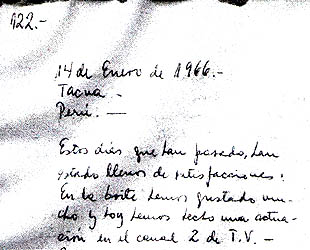 122.-
14 de Enero de 1966.-
Tacna -
Perú. —
Estos días que han pasado, han
estado llenos de satisfacciones.
En la boite hemos gustado mu-
cho y hoy hemos hecho una actua-
ción en el canal 2 de T.V. —